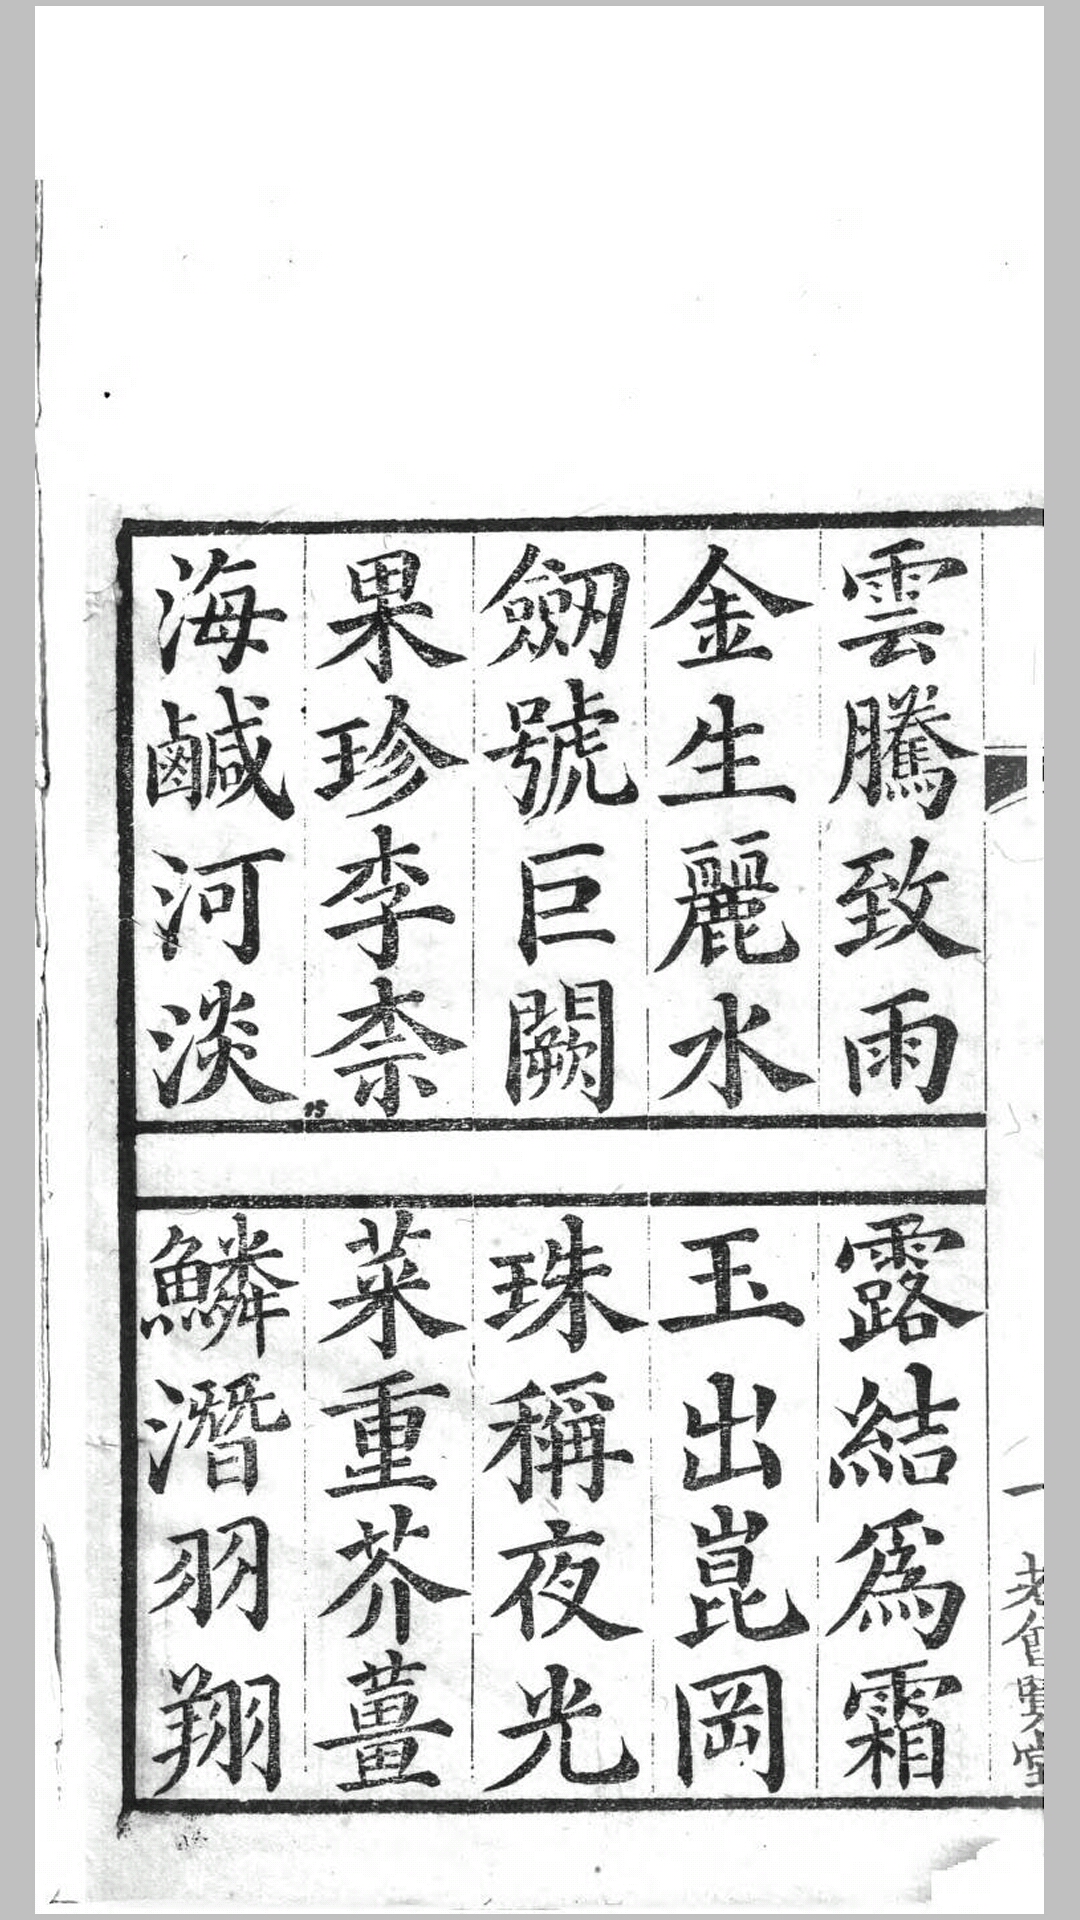 雲騰致雨
露結爲霜
金生麗水
玉出崑岡
劒號巨闕
珠稱夜光
果珍李柰
菜重芥薑
海鹹河淡
鱗潛羽翔
一
老會賢堂